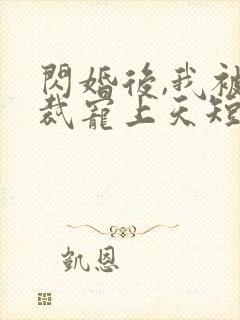 閃婚後,我被
裁寵上天短
凱恩